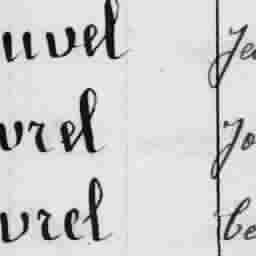 uvel Je
vrel Jo
vrel be